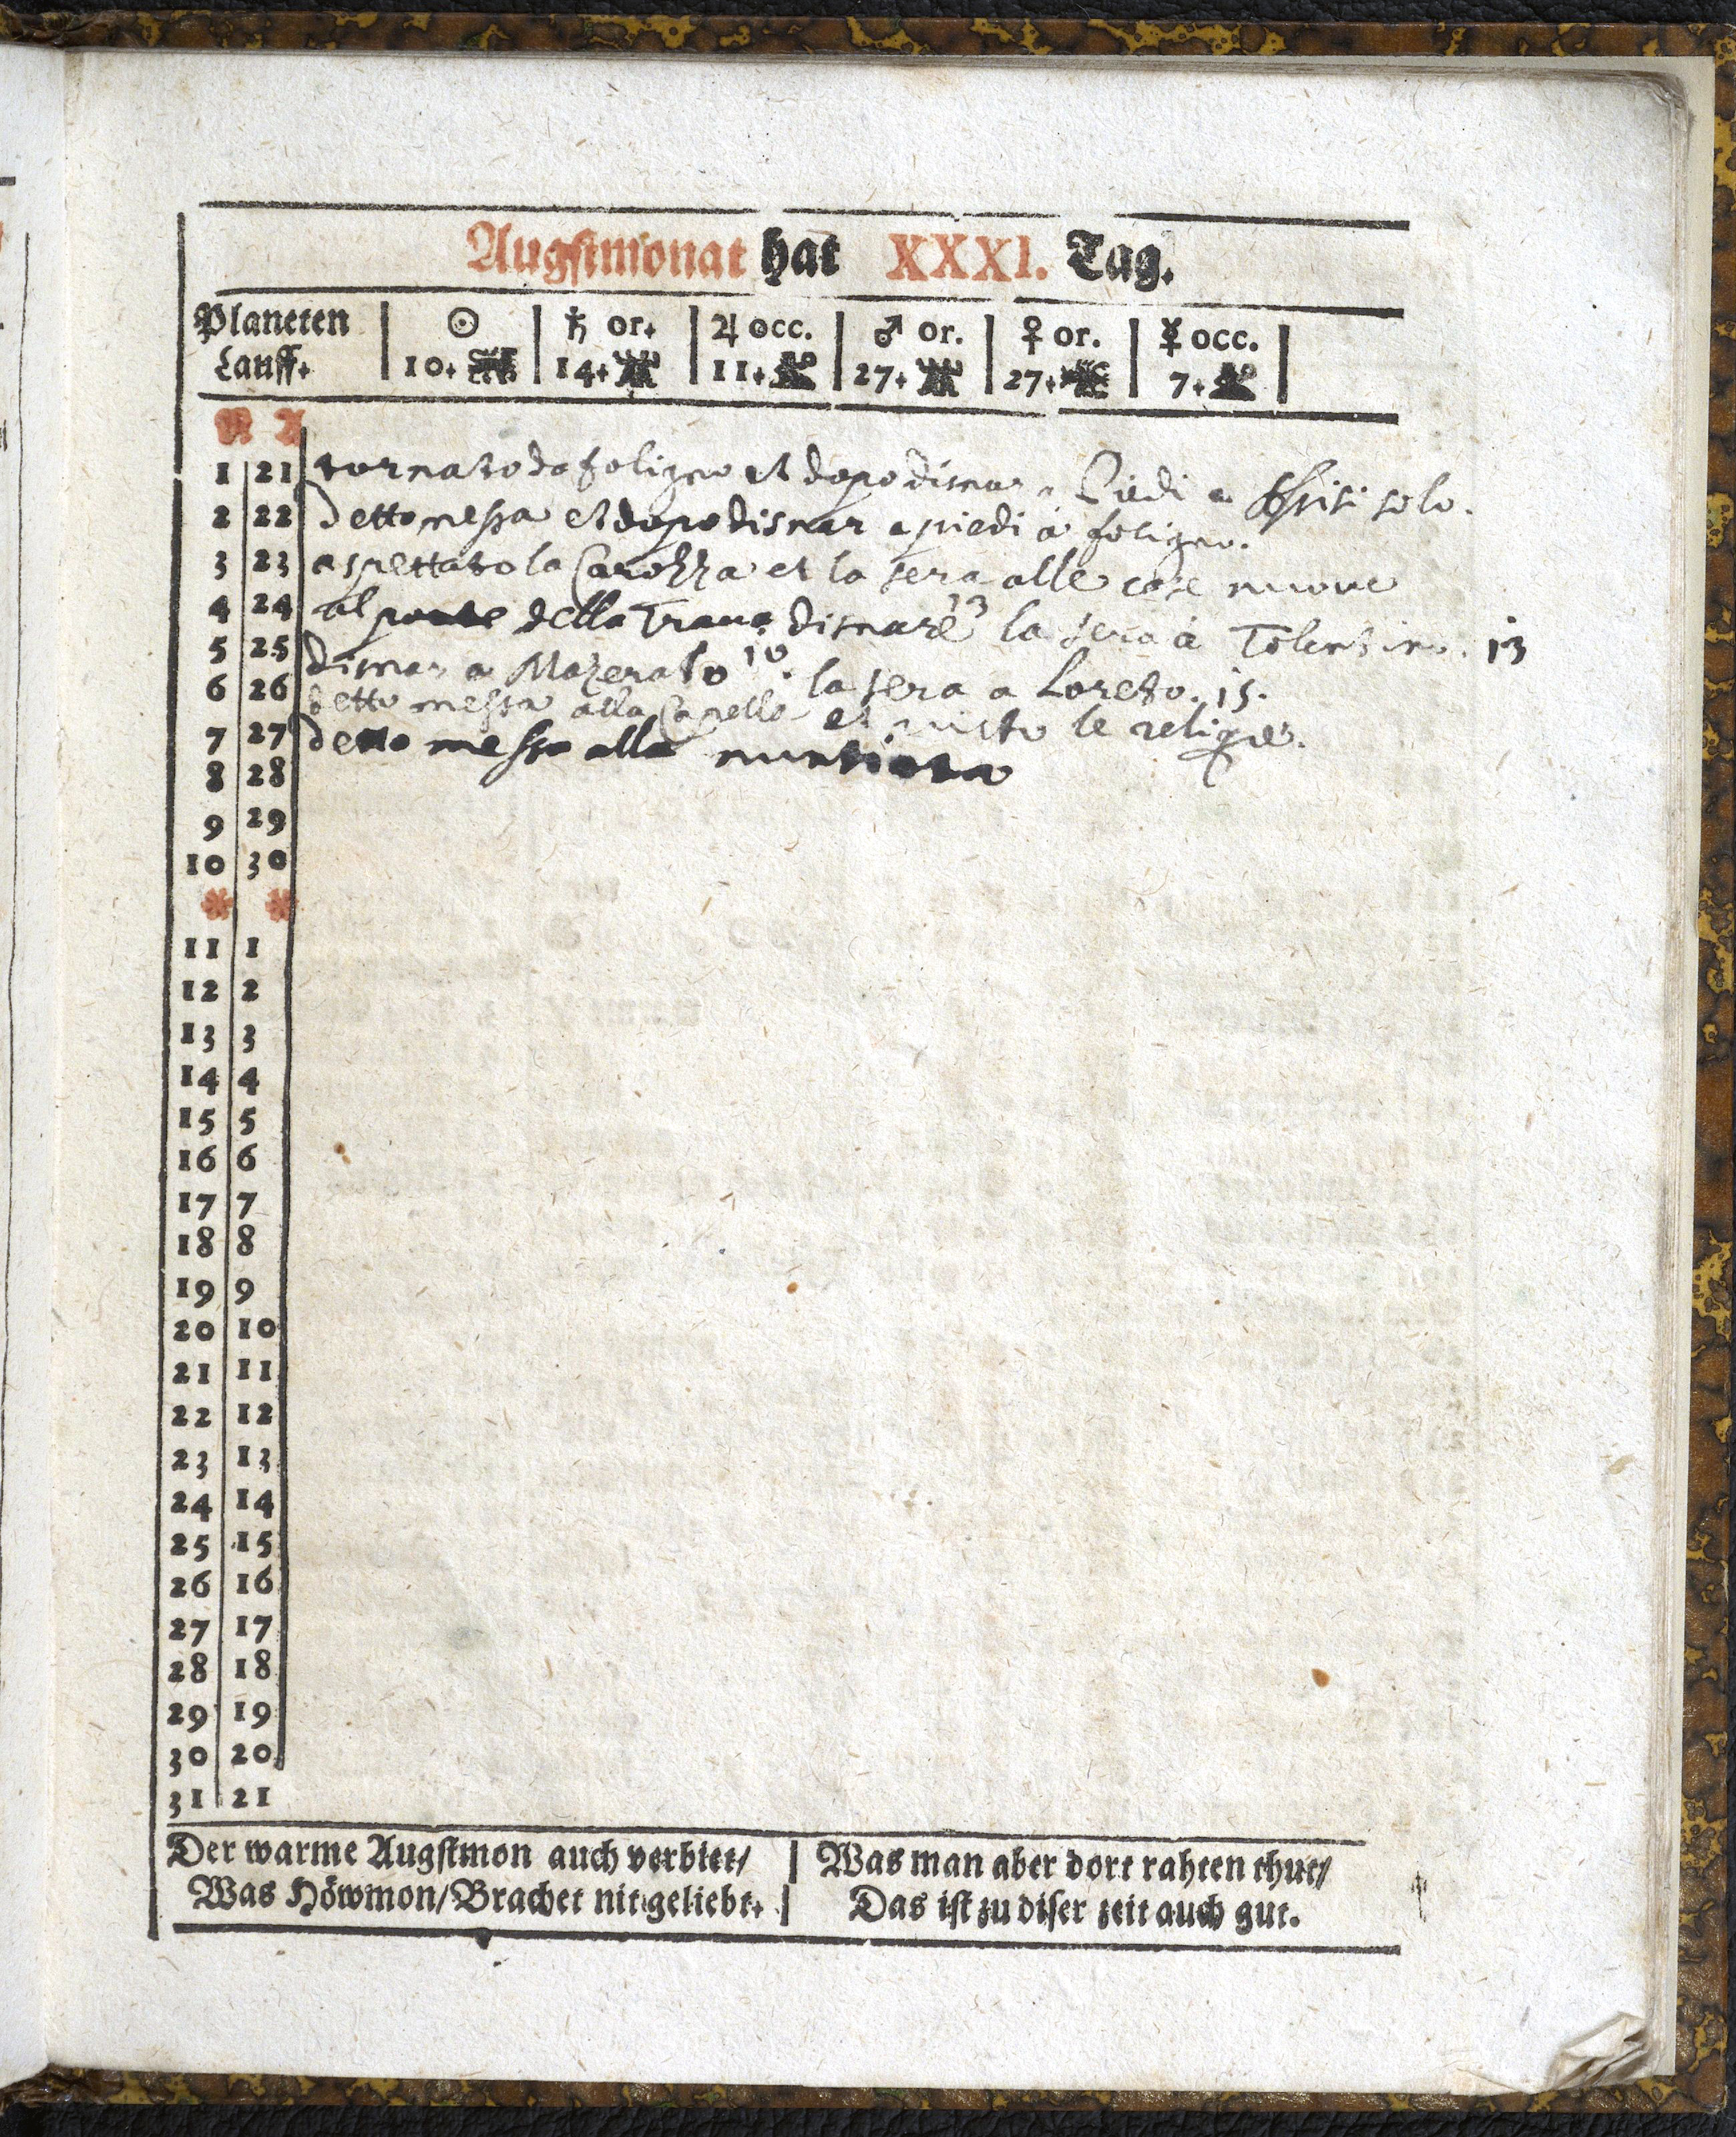 Augstmonat hat XXXI. Tag.
Planeten | ☉ | ♄ or. | ♃ occ. | ♂ or. | ♀ or. | ☿ occ. |
Lauff. | 10. ♌ | 14. | 11. | 27. | 27. | 7. |
N A
1 21 tornato da foligno et dopo disnar a Piedi a Assisi solo.
2 22 detto messa et dopo disnar a piedi à foligno.
3 23 aspettato la Carozza et la sera alle case nuove
4 24 al ponte della Trava disnare 13 la sera à Tolentino. 13
5 25 disnar a Mazerata 10. la sera a Loreto. 15.
6 26 detto messa alla Capella et visto le reliqie.
7 27 detto messa alla nuntiata
8 28
9 29
10 30
* *
11 1
12 2
13 3
14 4
15 5
16 6
17 7
18 8
19 9
20 10
21 11
22 12
23 13
24 14
25 15
26 16
27 17
28 18
29 19
30 20
31 21
Der warme Augstmon auch verbiet/
Was Höwmon/Brachet nit geliebt.
Was man aber dort rahten thut/
Das ist zu diser zeit auch gut.